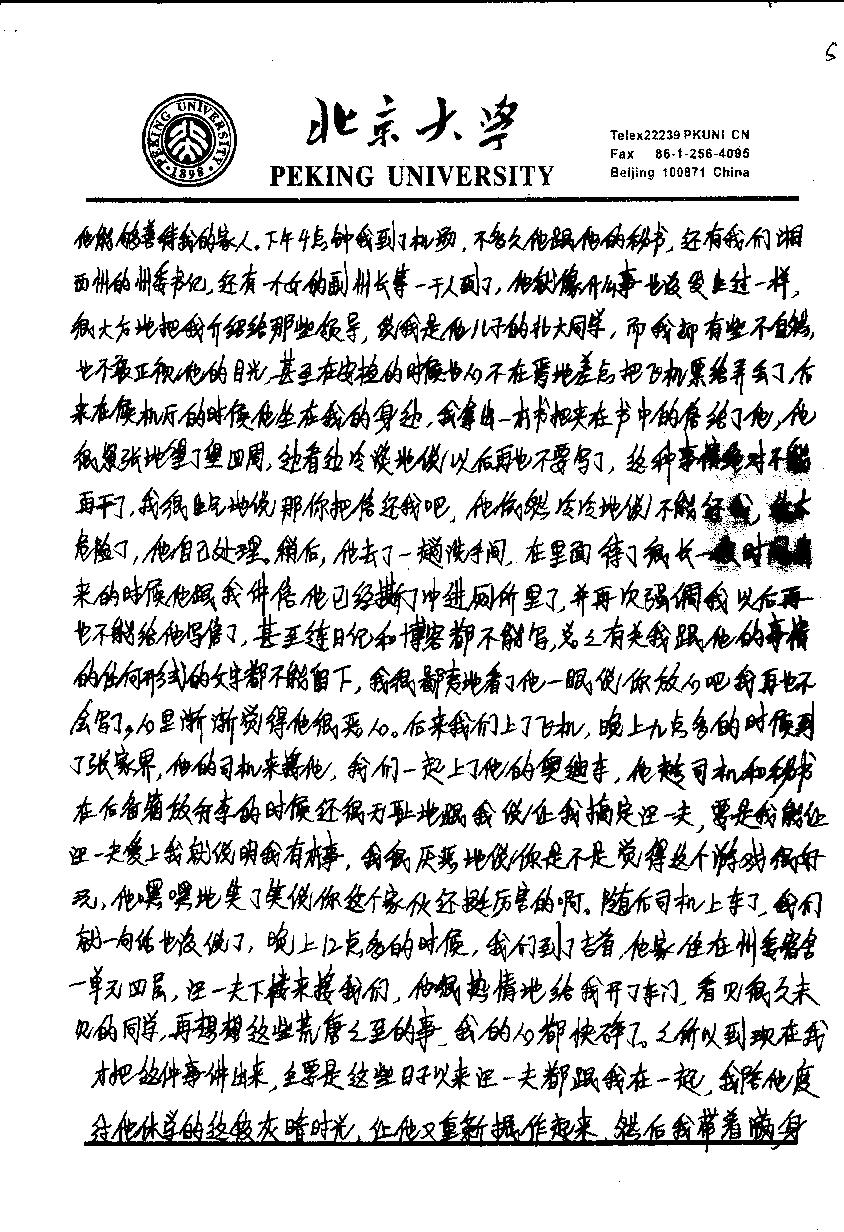 5
PEKING UNIVERSITY
1898
北京大学
PEKING UNIVERSITY
Telex22239 PKUNI CN
Fax 86-1-256-4095
Beijing 100871 China
他能够善待我的家人。下午4点钟我到了机场，不多久他跟他的秘书，还有我们湘
西州的州委书记，还有一个女的副州长等一干人到了，他就像什么事也没发生过一样，
很大方地把我介绍给那些领导，说我是他儿子的北大同学，而我却有些不自然，
也不敢正视他的目光，甚至在安检的时候心不在焉地差点把飞机票给弄丢了，后
来在候机厅的时候他坐在我的身边，我拿出一本书把夹在书中的信给了他，他
很紧张地望了望四周，边看边冷淡地说以后再也不要写了，这种事情绝对不能
再干了，我很生气地说那你把信还我吧，他依然冷冷地说不能还我，太
危险了，他自己处理。稍后，他去了一趟洗手间，在里面待了很长一段时间
来的时候他跟我讲信他已经撕了冲进厕所里了，并再次强调我以后再
也不能给他写信了，甚至连日记和博客都不能写，总之有关我跟他的事情
的任何形式的文字都不能留下，我很鄙夷地看了他一眼说你放心吧我再也不
会写了，心里渐渐觉得他很恶心。后来我们上了飞机，晚上九点多的时候到
了张家界，他的司机来接他，我们一起上了他的奥迪车，他趁司机和秘书
在后备箱放行李的时候还很无耻地跟我说让我搞定一夫，要是我能让
一夫爱上我就说明我有本事，我很厌恶地说你是不是觉得这个游戏很好
玩，他嘿嘿地笑了笑说你这个家伙还挺厉害的啊。随后司机上车了，我们
就一句话也没说了，晚上12点多的时候，我们到了吉首，他家住在州委宿舍
一单元四层，一夫下楼来接我们，他很热情地给我开了车门，看见很久未
见的同学，再想想这些荒唐之至的事，我的心都快碎了。之所以到现在我
才把这件事件出来，主要是这些日子以来一夫都跟我在一起，我陪他度
过他休学的这段灰暗时光，让他又重新振作起来，然后我带着满身